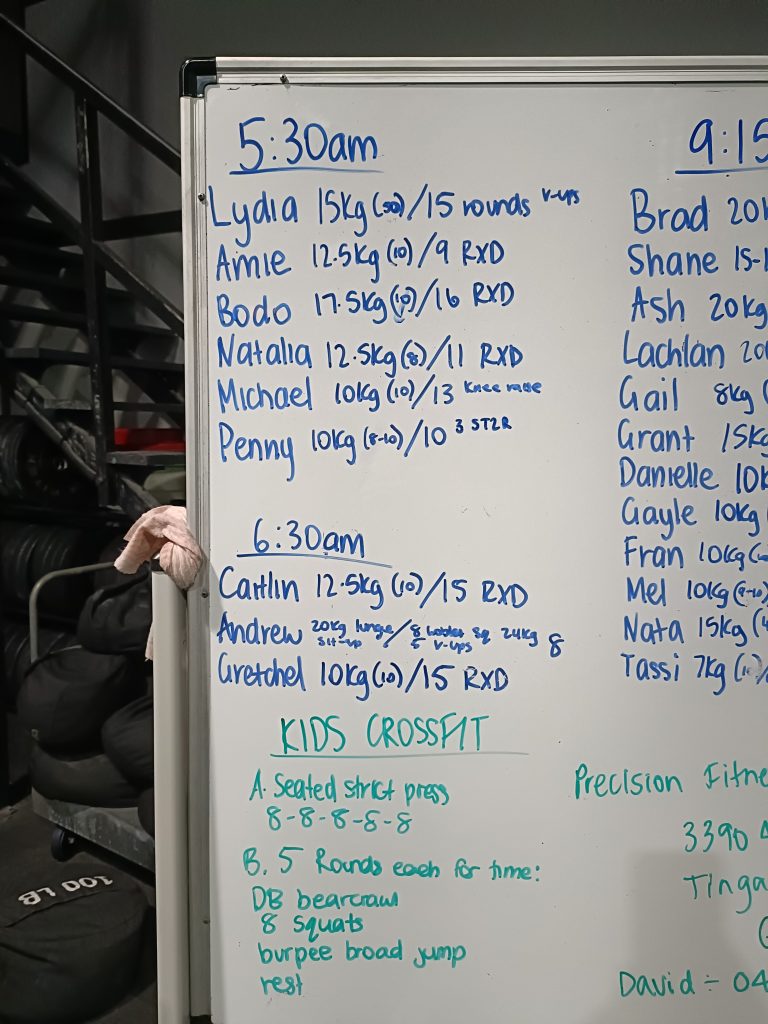 5:30am
Lydia 15kg (10)/15 rounds v-ups
Amie 12.5kg (10)/9 RXD
Bodo 17.5kg (10)/16 RXD
Natalia 12.5kg (8)/11 RXD
Michael 10kg (10)/13 knee raise
Penny 10kg (8-10)/10 3 ST2R
6:30am
Caitlin 12.5kg (10)/15 RXD
Andrew 20kg lunge / 8 sq 24kg 8
sit-up 5 v-ups
Gretchel 10kg (10)/15 RXD
KIDS CROSSFIT
A. Seated strict press
8-8-8-8-8
B. 5 Rounds each for time:
DB bearcrawl
8 squats
burpee broad jump
rest
9:15
Brad 20k
Shane 15-1
Ash 20kg
Lachlan 20
Gail 8kg (
Grant 15kg
Danielle 10k
Gayle 10kg
Fran 10kg (
Mel 10kg (9-10)
Nata 15kg (
Tassi 7kg (10)/
Precision Fitne
3390
Tinga
David - 04
100 LB